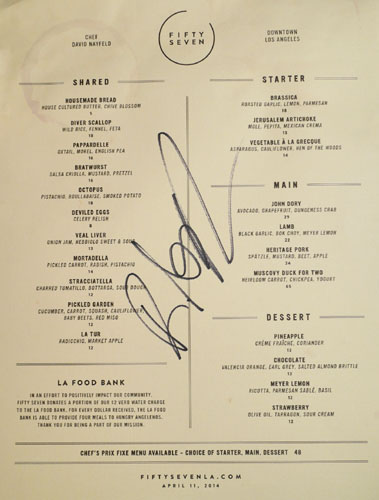 CHEF
DAVID NAYFELD
FIFTY
SEVEN
DOWNTOWN
LOS ANGELES
SHARED
HOUSEMADE BREAD
HOUSE CULTURED BUTTER, CHIVE BLOSSOM
DIVER SCALLOP
WILD RICE, FENNEL, FETA
18
PAPPARDELLE
OXTAIL, MOREL, ENGLISH PEA
16
BRATWURST
SALSA CRIOLLA, MUSTARD, PRETZEL
OCTOPUS
PISTACHIO, BOUILLABAISE, SMOKED POTATO
18
DEVILED EGGS
CELERY RELISH
VEAL LIVER
ONION JAM, NEBBIOLO SWEET & SOUR
MORTADELLA
PICKLED CARROT, RADISH, PISTACHIO
14
STRACCIATELLA
CHARRED TOMATILLO, BOTTARGA, SOURDOUGH
12
PICKLED GARDEN
CUCUMBER, CARROT, SQUASH, CAULIFLOWER
BABY BEETS, RED MISO
12
LA TUR
RADICCHIO, MARKET APPLE
12
LA FOOD BANK
IN AN EFFORT TO POSITIVELY IMPACT OUR COMMUNITY,
FIFTY SEVEN DONATES A PORTION OF OUR $2 VERO WATER CHARGE
TO THE LA FOOD BANK. FOR EVERY DOLLAR RECEIVED, THE LA FOOD
BANK IS ABLE TO PROVIDE FOUR MEALS TO HUNGRY ANGELENOS.
THANK YOU FOR BEING A PART OF OUR MISSION.
STARTER
BRASSICA
ROASTED GARLIC, LEMON, PARMESAN
JERUSALEM ARTICHOKE
MOLE, PEPITA, MEXICAN CREMA
VEGETABLE À LA GRECQUE
ASPARAGUS, CAULIFLOWER, HEN OF THE WOODS
14
MAIN
JOHN DORY
AVOCADO, GRAPEFRUIT, DUNGENESS CRAB
29
LAMB
BLACK GARLIC, BOK CHOY, MEYER LEMON
HERITAGE PORK
SPÄTZLE, MUSTARD, BEET, APPLE
MUSCOVY DUCK FOR TWO
HEIRLOOM CARROT, CHICKPEA, YOGURT
DESSERT
PINEAPPLE
CRÈME FRAÎCHE, CORIANDER
12
CHOCOLATE
VALENCIA ORANGE, EARL GREY, SALTED ALMOND BRITTLE
12
MEYER LEMON
RICOTTA, PARMESAN SABLÉ, BASIL
12
STRAWBERRY
OLIVE OIL, TAPRAGON, SOUR CREAM
12
CHEF'S PRIX FIXE MENU AVAILABLE - CHOICE OF STARTER, MAIN, DESSERT 48
FIFTYSEVENLA.COM
APRIL 11, 2014